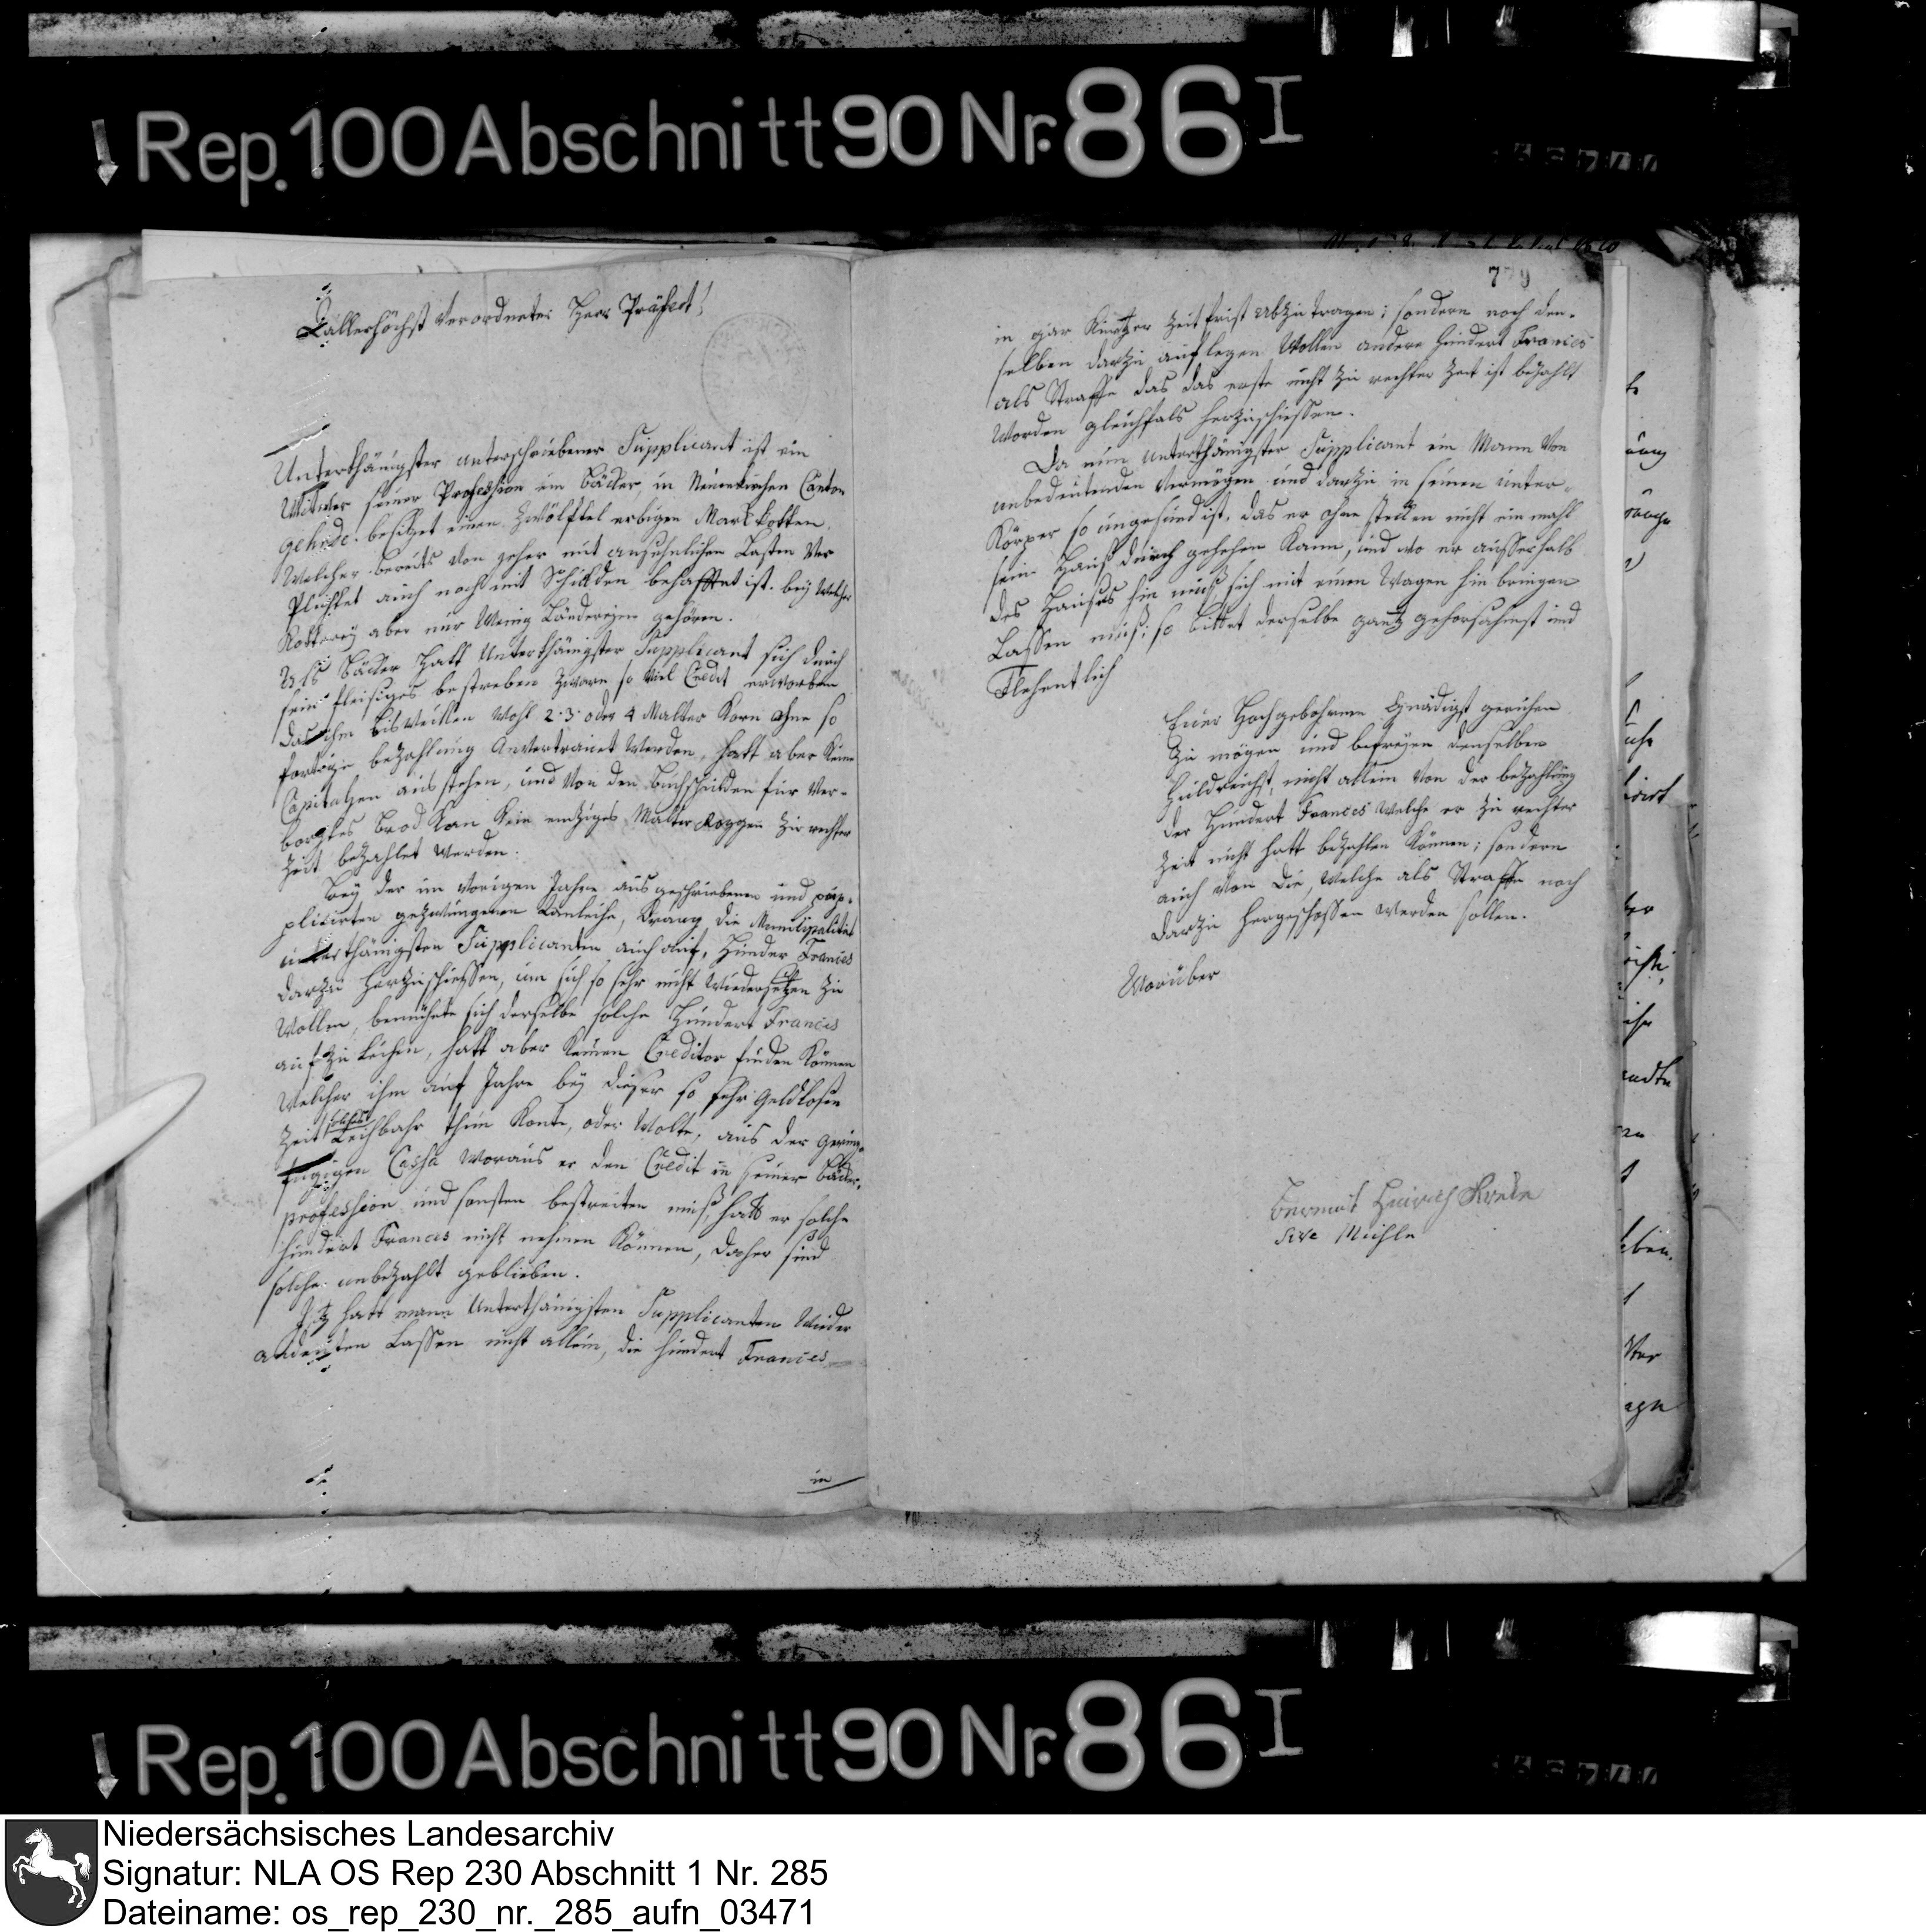 Rep. 100 Abschnitt 90 Nr. 86 I
Allerhöchst Verordneter Herr Präfect!
Unterthänigster unterschriebener Supplicant ist ein
Witwer seiner Profession ein Bäcker, in Neuenkirchen Canton
Gehrde. besitzet einen Zwölftel erbigen Markkotten,
Welcher bereits von jeher mit ansehnlichen Lasten Ver
Plichtet auch noch mit Schulden behafftet ist. bey welcher
Kotterey aber nur Wenig Ländereyen gehören.
Als Bäcker Hatt Unterthänigster Supplicant sich durch
sein fleisiges bestreben zwarn so viel Credit erworben
das ihm bisweillen Wohl 2. 3. oder 4 Malter Korn ohne so
fortige bezahlung Anvertrauet Werden, hatt aber Keine
Capitalzen ausstehen, und Von den Buchschulden für Ver-
borgtes Brod kan Kein einziges Malter Roggen zu rechter
Zeit bezahlet Werden.
Bey der im vorigen Jahre ausgeschriebenen und
plicirten gezwungenen Anleihe, drang die Municipalität
unterthänigsten Supplicanten auch auf, Hunder Francs
darzu herzuschiessen, um sich so sehr nicht Wiedersetzen zu
Wollen, bemühete sich derselbe solche Hundert Francs
aufzuleihen, hatt aber Keinen Creditor finden Können
Welcher ihm auf Jahre bey dieser so sehr Geldlosen
Zeit solches Leihbahr thun Konte, oder Wolte, aus der Gering-
fügigen Cassa Woraus er den Credit in seiner Bäcker-
profession und sonsten bestreiten muß, hatt er solche
Hundert Francs nicht nehmen Können, daher sind
solche unbezahlt geblieben.
Jtz hatt mann Unterthänigsten Supplicanten Wieder
andeuten Lassen nicht allein, die Hundert Francs
in
779
in gar Kurtzer Zeit frist Abzutragen; sondern noch den-
selben darzu auflegen Wollen andere Hundert Francs
als Straffe das das erste nicht zu rechter Zeit ist bezahlt
Worden gleichfals herzuschiessen.
Da nun unterthänigster Supplicant ein Mann Von
unbedeutenden Vermögen und darzu in seinen unter-
Körper so ungesund ist, das er ohne stecken nicht ein mahl
sein Hauß durch gehehen Kann, und wo er ausserhalb
des Hauses hin muß, sich mit einen Wagen hin bringen
Lassen muß; so bittet derselbe gantz gehorsahmst und
Flehentlich
Euer Hochgebohrnen Gnädigst geruhen
zu mögen und befreyen denselben
Huldreichst, nicht allein Von der bezahlung
der Hundert Francs Welche er zu rechter
Zeit nicht hatt bezahlen Können; sondern
auch Von die, Welche als Straffe noch
darzu hergeschossen Werden sollen.
Worüber
Bernd Hinrich Krele
sive Muhle
Rep. 100 Abschnitt 90 Nr. 86 I
Niedersächsisches Landesarchiv
Signatur: NLA OS Rep 230 Abschnitt 1 Nr. 285
Dateiname: os_rep_230_nr._285_aufn_03471